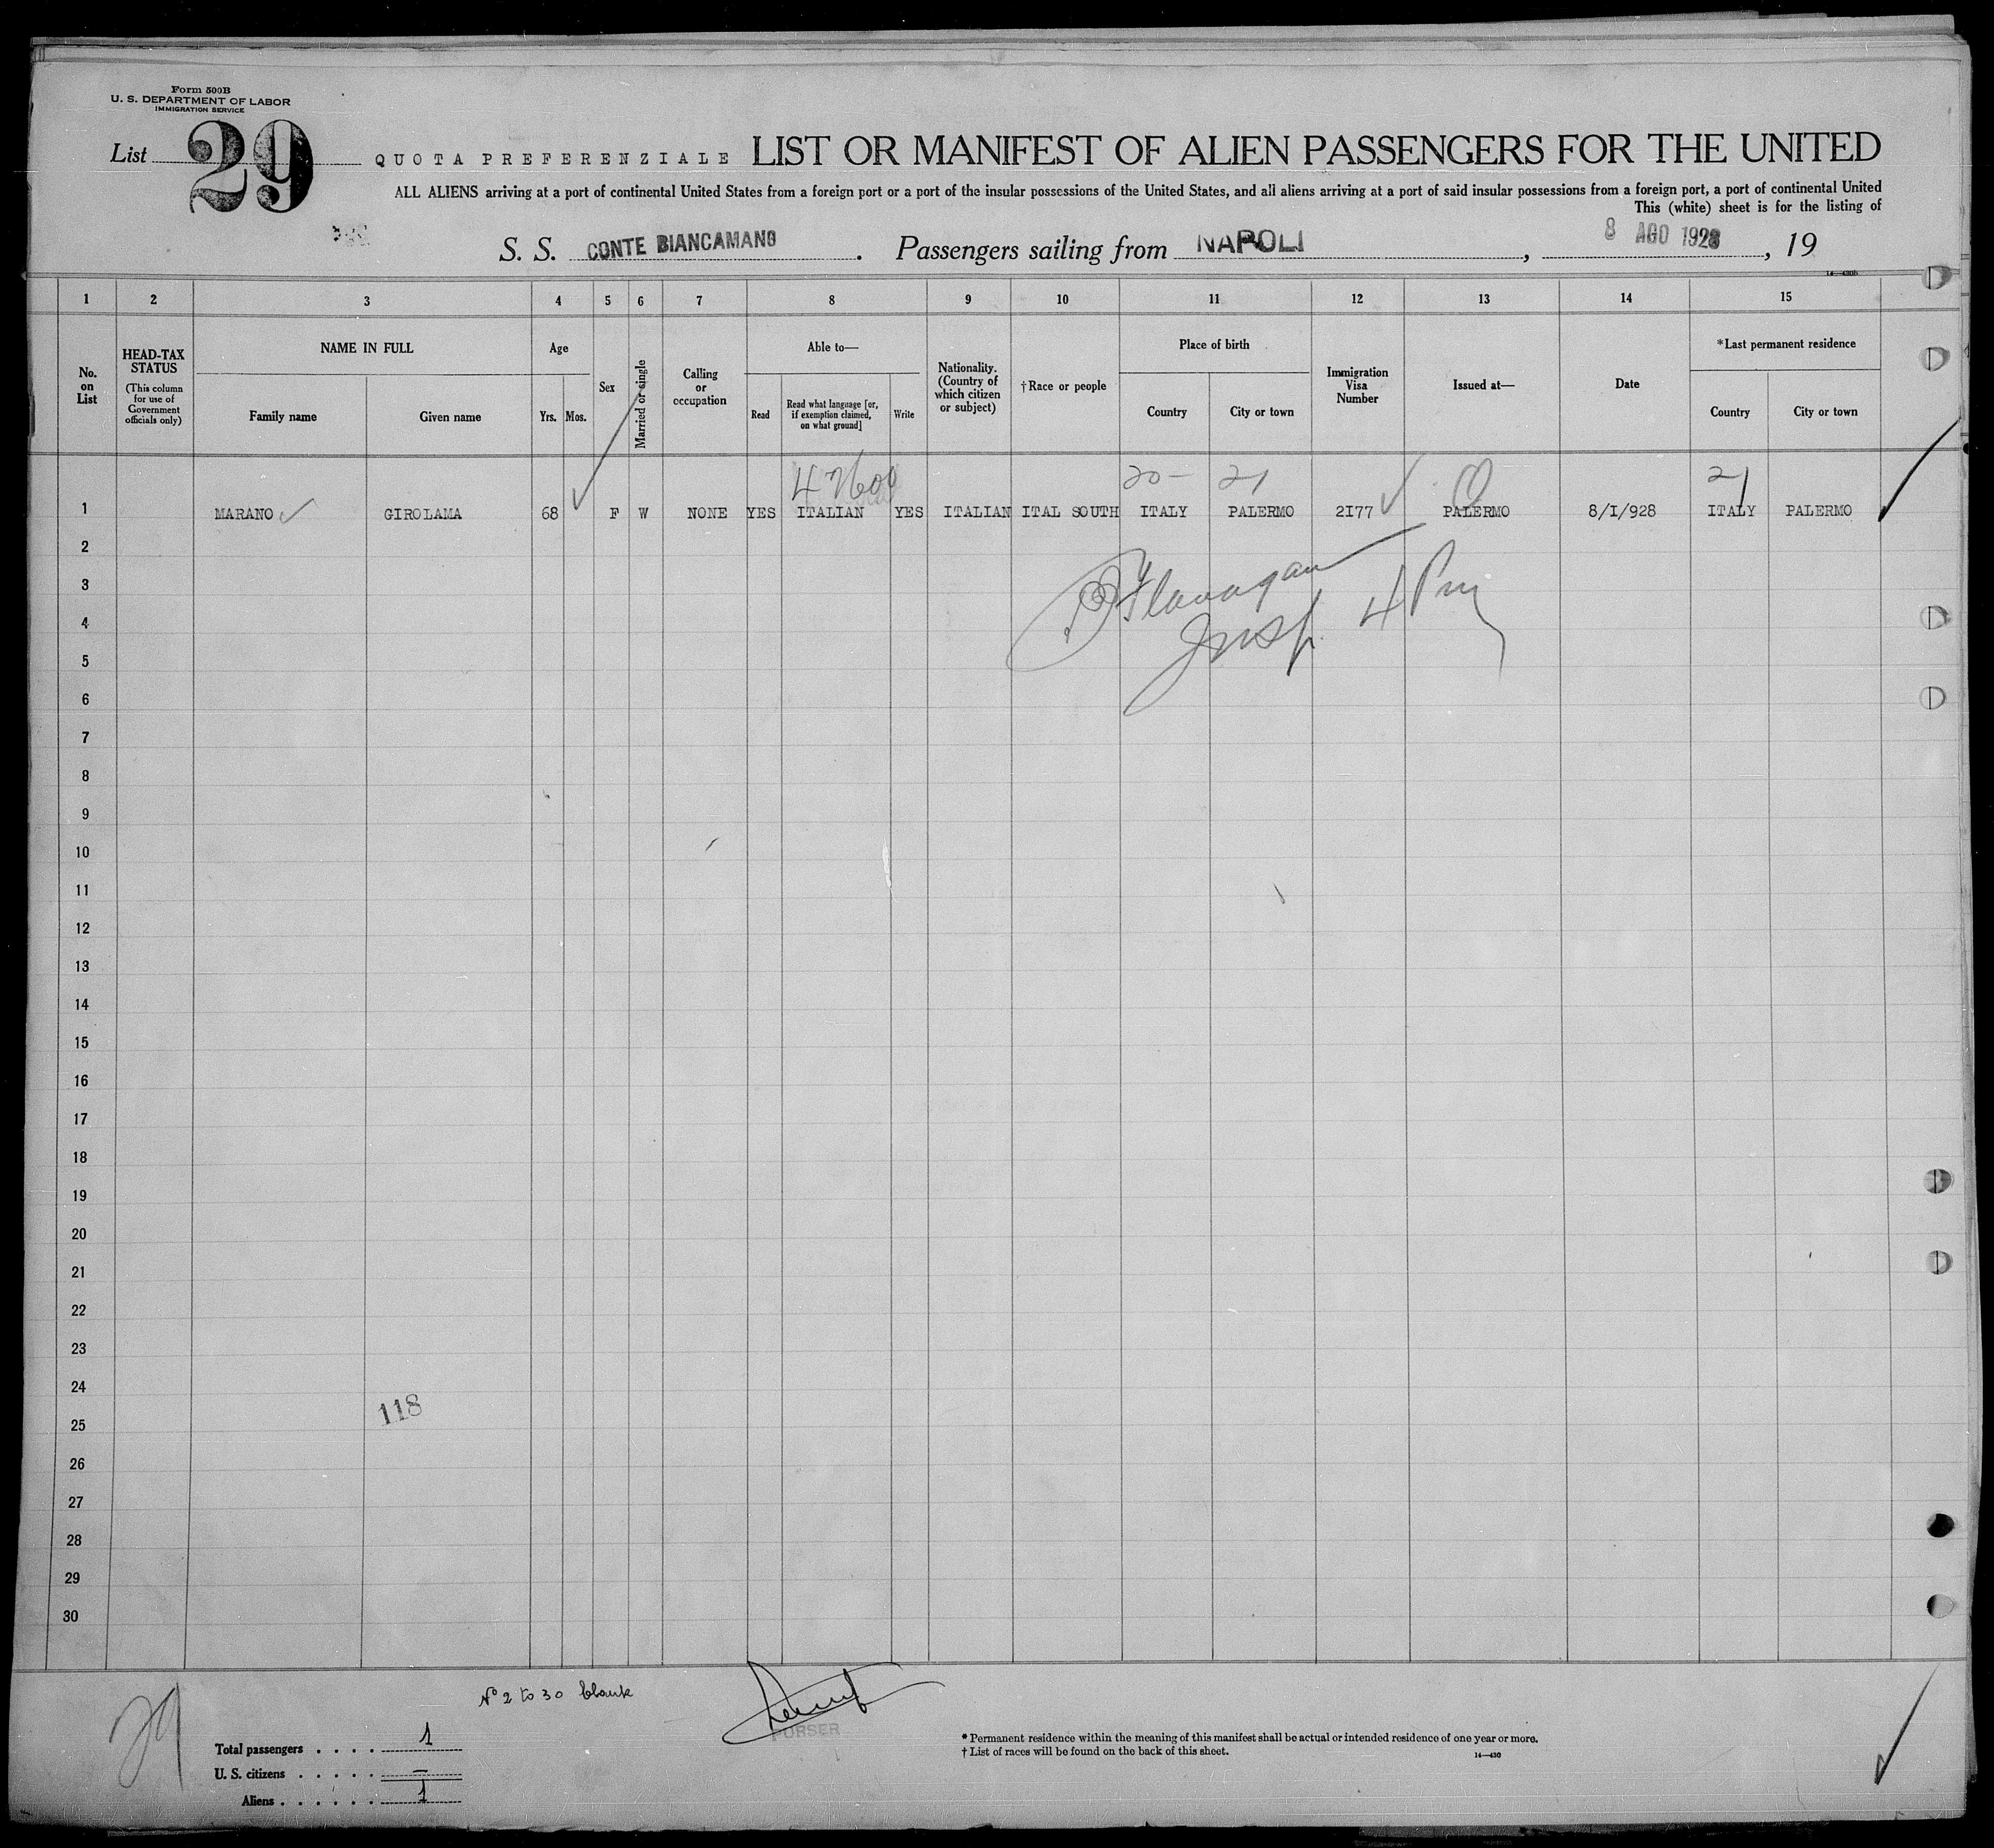 Form 500B
U. S. DEPARTMENT OF LABOR
IMMIGRATION SERVICE
List 29 QUOTA PREFERENZIALE LIST OR MANIFEST OF ALIEN PASSENGERS FOR THE UNITED
ALL ALIENS arriving at a port of continental United States from a foreign port or a port of the insular possessions of the United States, and all aliens arriving at a port of said insular possessions from a foreign port, a port of continental United
This (white) sheet is for the listing of
S. S. CONTE BIANCAMANO. Passengers sailing from NAPOLI, 8 AGO 1928, 19
1 2 3 4 5 6 7 8 9 10 11 12 13 14 15
No. on List
HEAD-TAX STATUS
(This column for use of Government officials only)
NAME IN FULL
Family name Given name
Age
Yrs. Mos.
Sex
Married or single
Calling or occupation
Able to—
Read
Read what language [or, if exemption claimed, on what ground]
Write
Nationality. (Country of which citizen or subject)
†Race or people
Place of birth
Country City or town
Immigration Visa Number
Issued at—
Date
*Last permanent residence
Country City or town
20- 21 21
1 MARANO GIROLAMA 68 F W NONE YES ITALIAN YES ITALIAN ITAL SOUTH ITALY PALERMO 2I77 PALERMO 8/I/928 ITALY PALERMO
2
3 Flanagan
4 Insp. 4 Pm
5
6
7
8
9
10
11
12
13
14
15
16
17
18
19
20
21
22
23
24
118
25
26
27
28
29
30
29
No 2 to 30 blank
PURSER
Total passengers . . . . 1
U. S. citizens . . . . . —
Aliens . . . . . . 1
* Permanent residence within the meaning of this manifest shall be actual or intended residence of one year or more.
† List of races will be found on the back of this sheet.
14—430